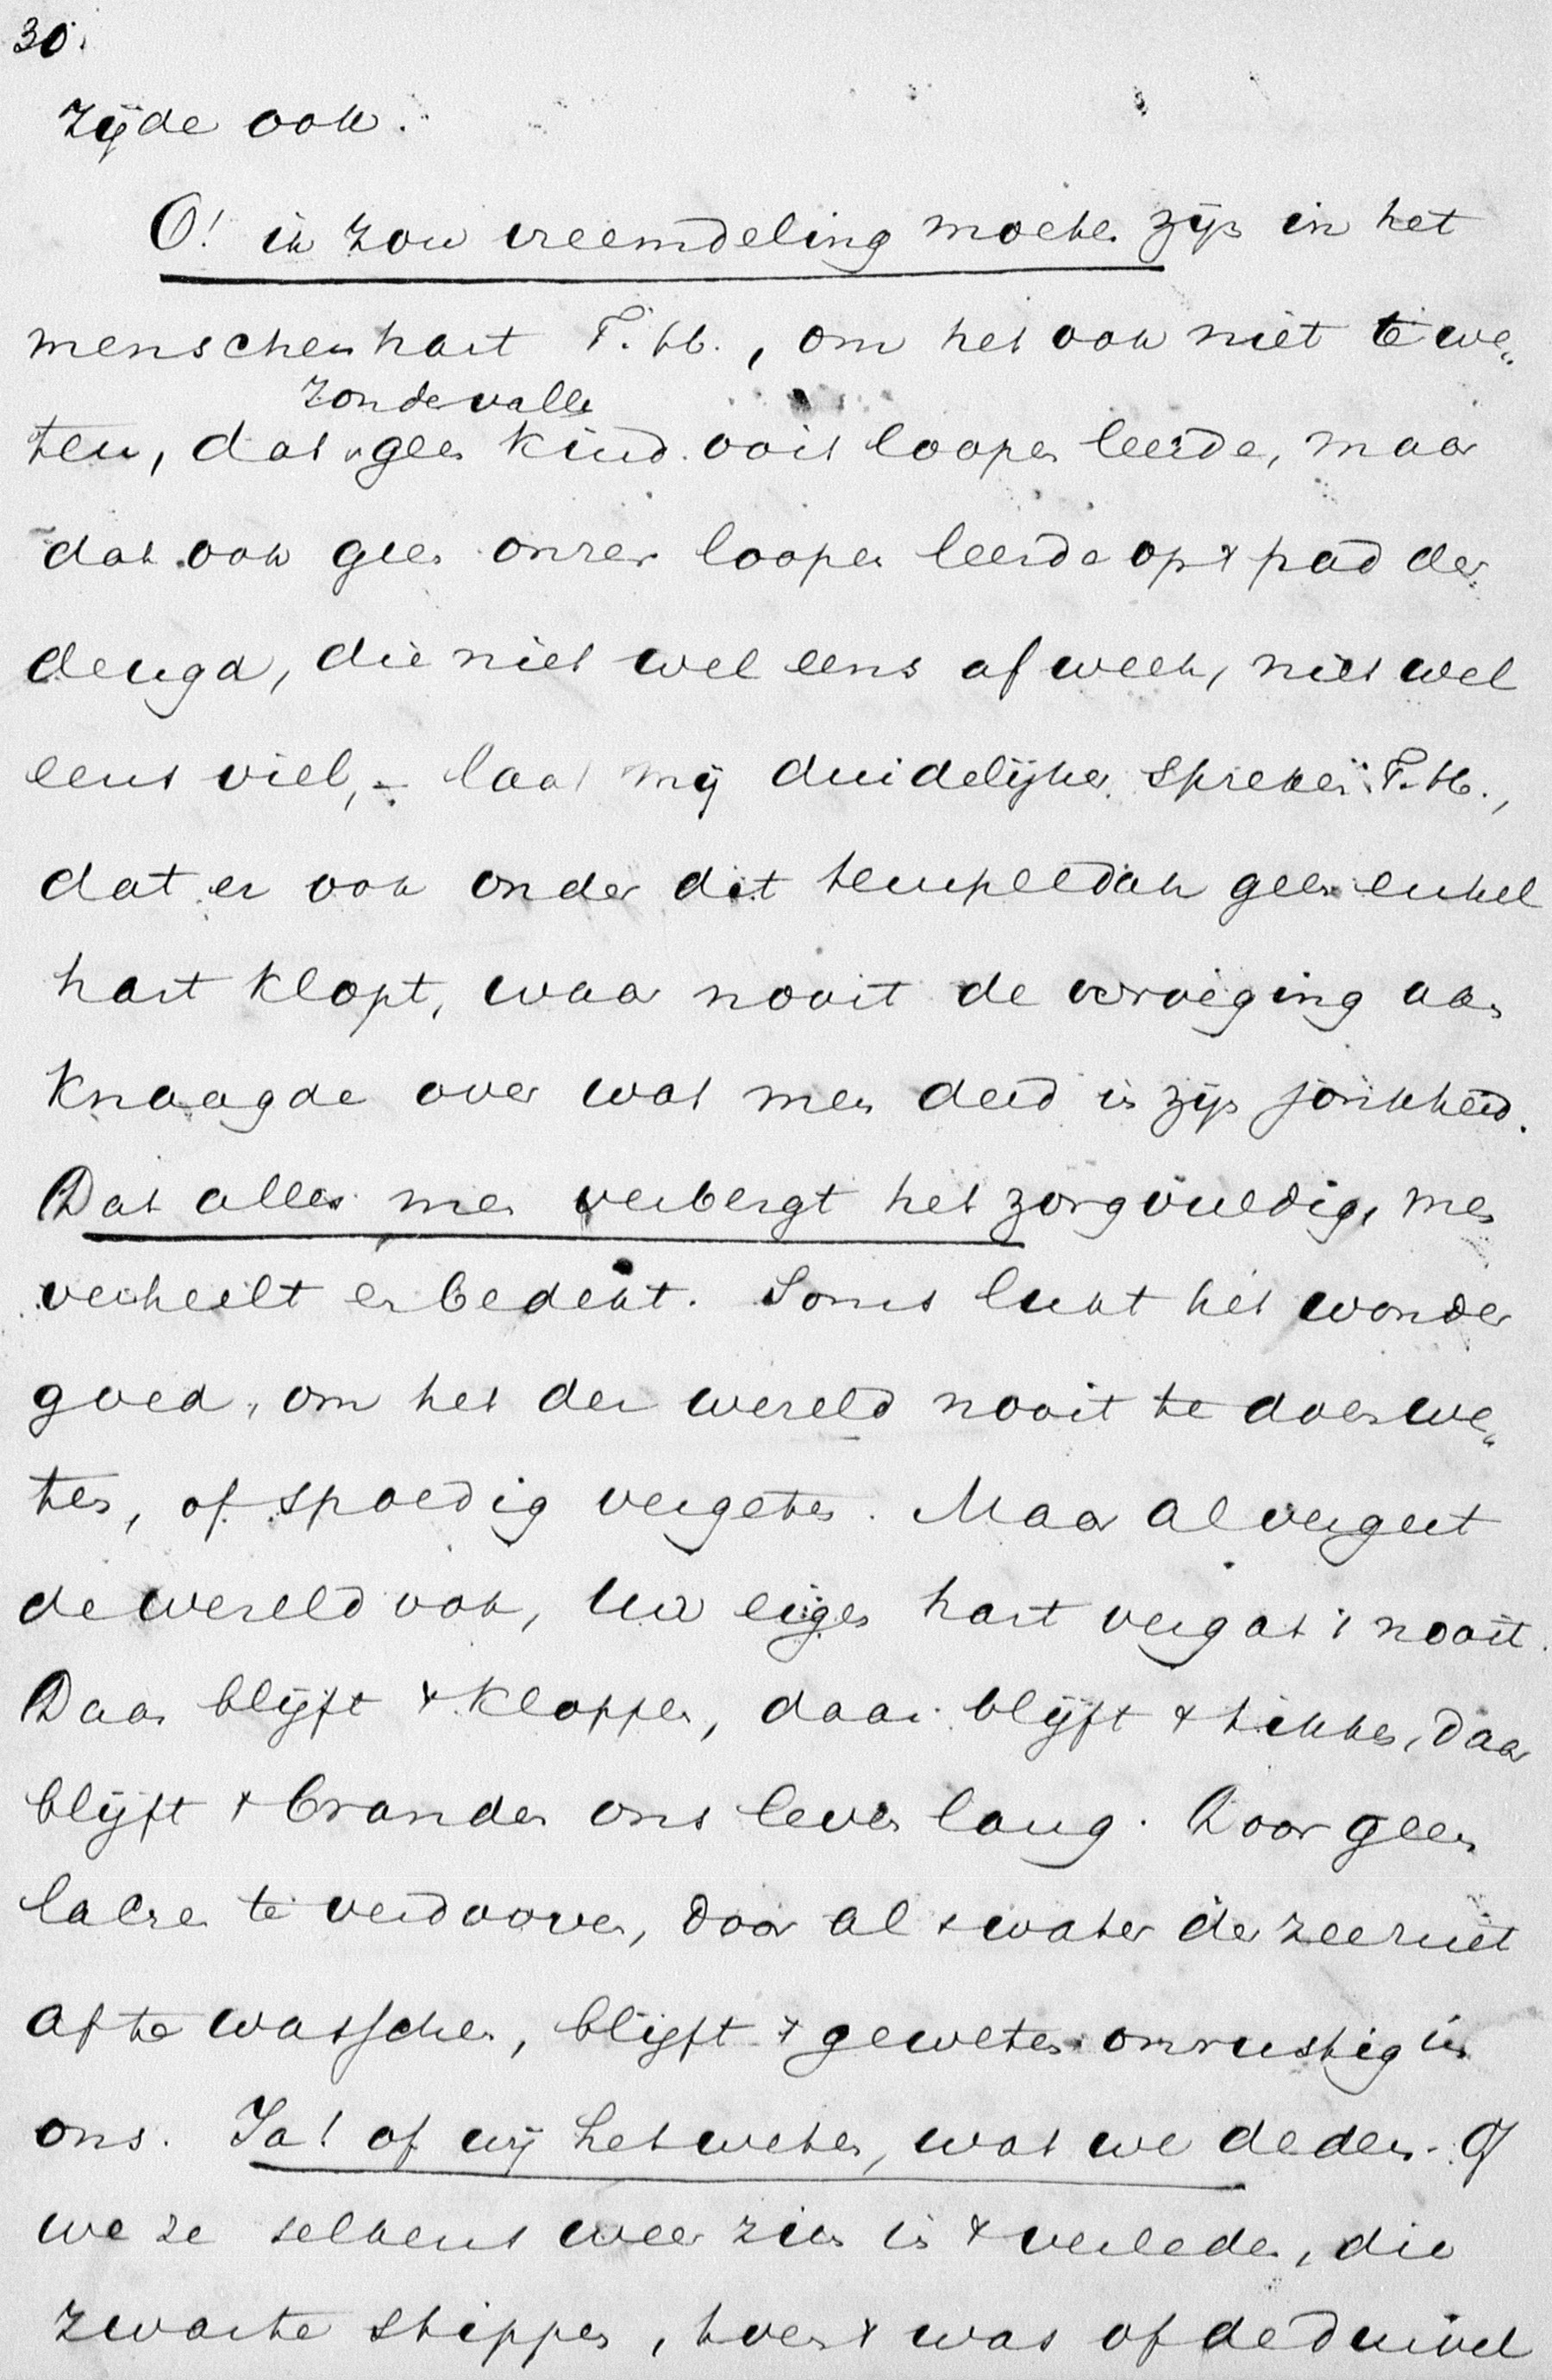 30.
zijde ook.
O! ik zou vreemdeling moeten zijn in het
menschenhart T. H., om het ook niet te we„
zonder vallen
ten, dat geen kind ooit loopen leerde, maar
dat ook geen onzer loopen leerde op 't pad der
deugd, die niet wel eens afweek, niet wel
eens viel, – laat mij duidelijker spreken T. H.,
dat er ook onder dit tempeldak geen enkel
hart klopt, waar nooit de wroeging aan
knaagde over wat men deed in zijn jonkheid.
Dat alles men verbergt het zorgvuldig, men
verheelt en bedekt. Soms lukt het wonder
goed, om het der wereld nooit te doen we„
ten, of spoedig vergeten. Maar al vergeet
de wereld ook, Uw eigen hart vergat 't nooit.
Daar blijft 't kloppen, daar blijft 't tikken, daar
blijft 't branden ons leven lang. Door geen
balsem te verdooven, door al 't water der zee niet
af te wasschen, blijft 't geweten onrustig in
ons. Ja! of wij het weten, wat we deden. Of
we ze telkens weer zien in 't verleden, die
zwarte stippen, toen 't was of de duivel